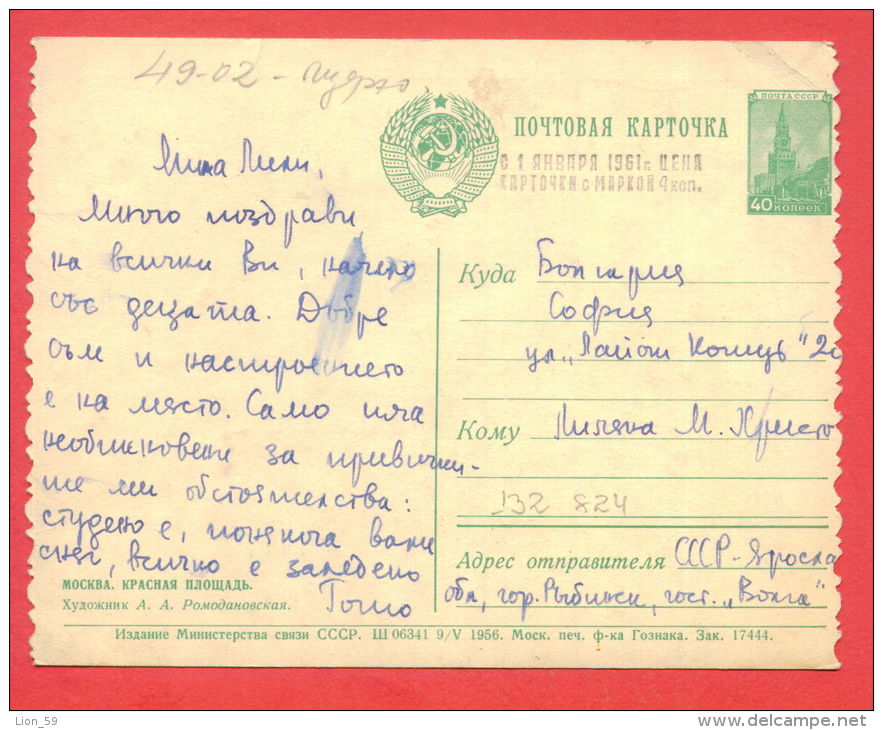 49-02 -
ПОЧТА СССР
40 КОПЕЕК
ПОЧТОВАЯ КАРТОЧКА
С 1 ЯНВАРЯ 1961г. ЦЕНА
КАРТОЧКИ с МАРКОЙ 4 коп.
Мила Лили,
Много поздрави
на всички Ви, начело
със децата. Добре
съм и настроението
е на место. Само има
необикновени за привички-
те ми обстоятелства:
студено е, понякога вали
сняг, всичко е заледено
Тошо
МОСКВА. КРАСНАЯ ПЛОЩАДЬ.
Художник А. А. Ромодановская.
Куда Болгария
София
ул. „Лайош Кошут" 2
Кому Лиляна М. Христо
132 824
Адрес отправителя СССР-Яросла
обл, гор. Рыбинск, гост. „Волга"
Издание Министерства связи СССР. Ш 06341 9/V 1956. Моск. печ. ф-ка Гознака. Зак. 17444.
Lion_59
www.delcampe.net